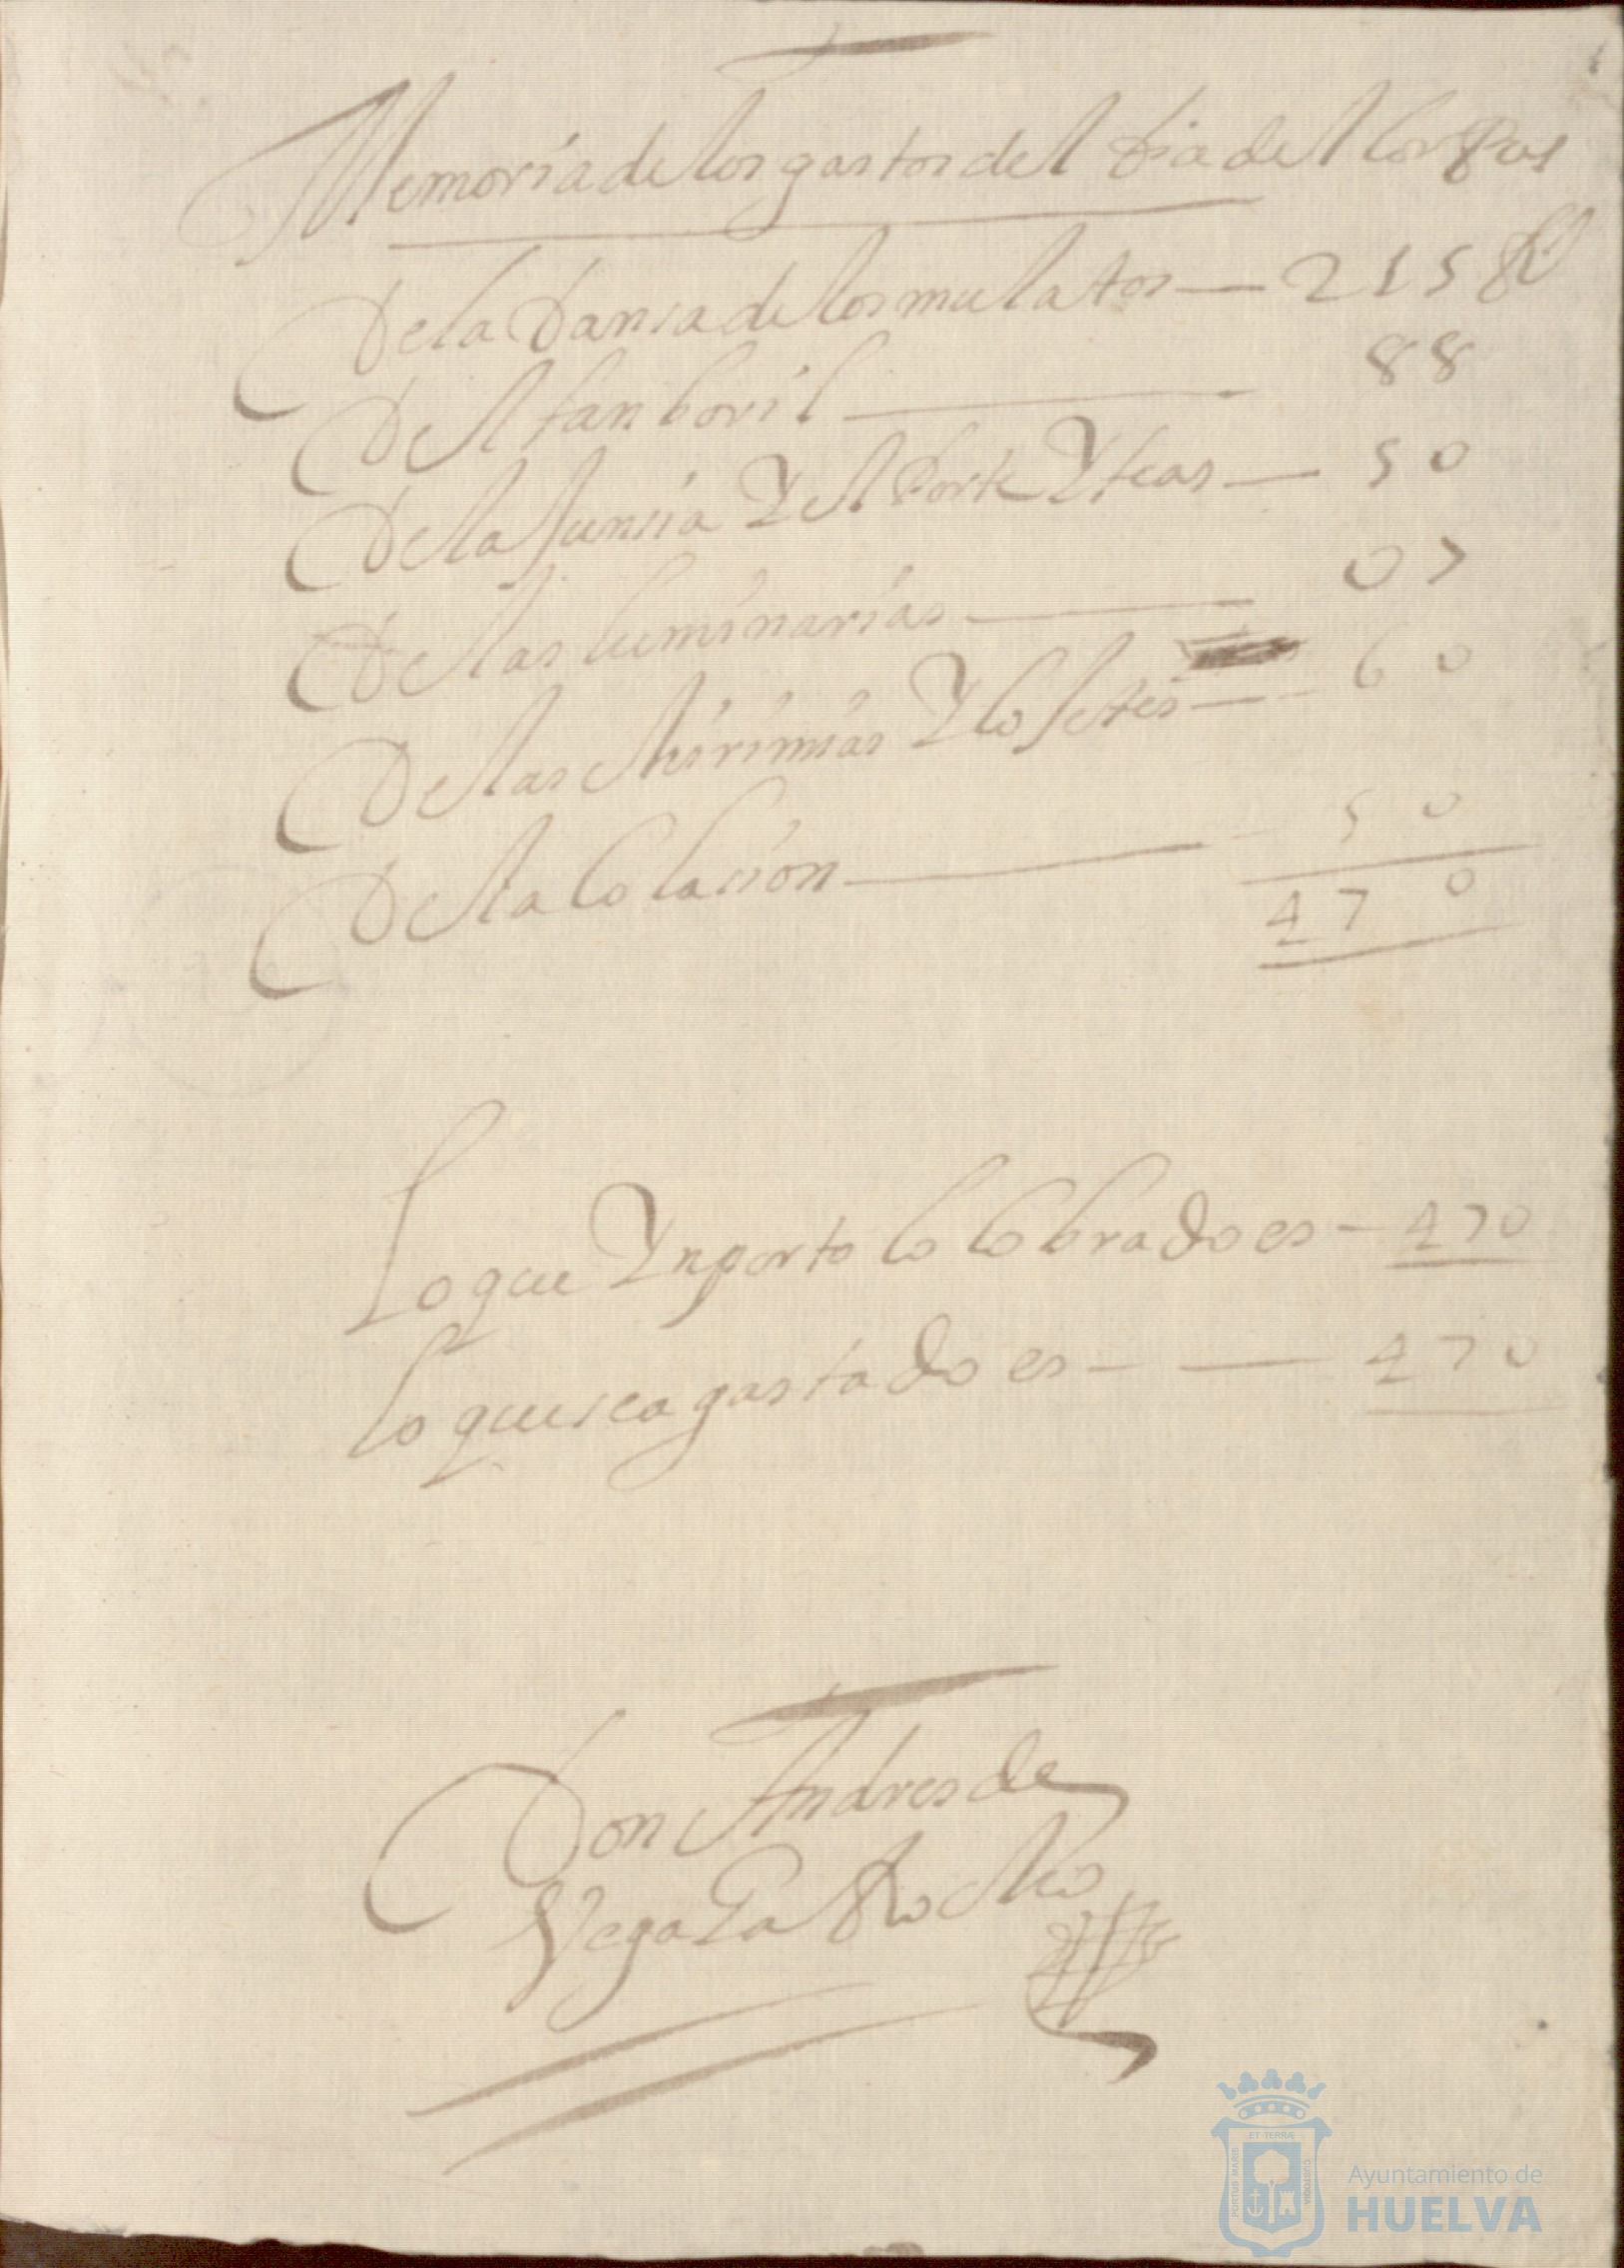 Memoria de los gastos del dia del Corpus
De la dansa de los mulatos — 215 R
Del tanboril — 88
De la Junsia Y el Porte Y teas — 50
De las luminarias — 07
De las chirimias Y Cohetes — 60
De la Colasion — 50
470
Lo que Ynporto lo Cobrado es — 470
lo que sea gastado es — — 470
Don Andres de
Vega
ET TERRÆ
PORTUS MARIS
CUSTODIA
Ayuntamiento de
HUELVA